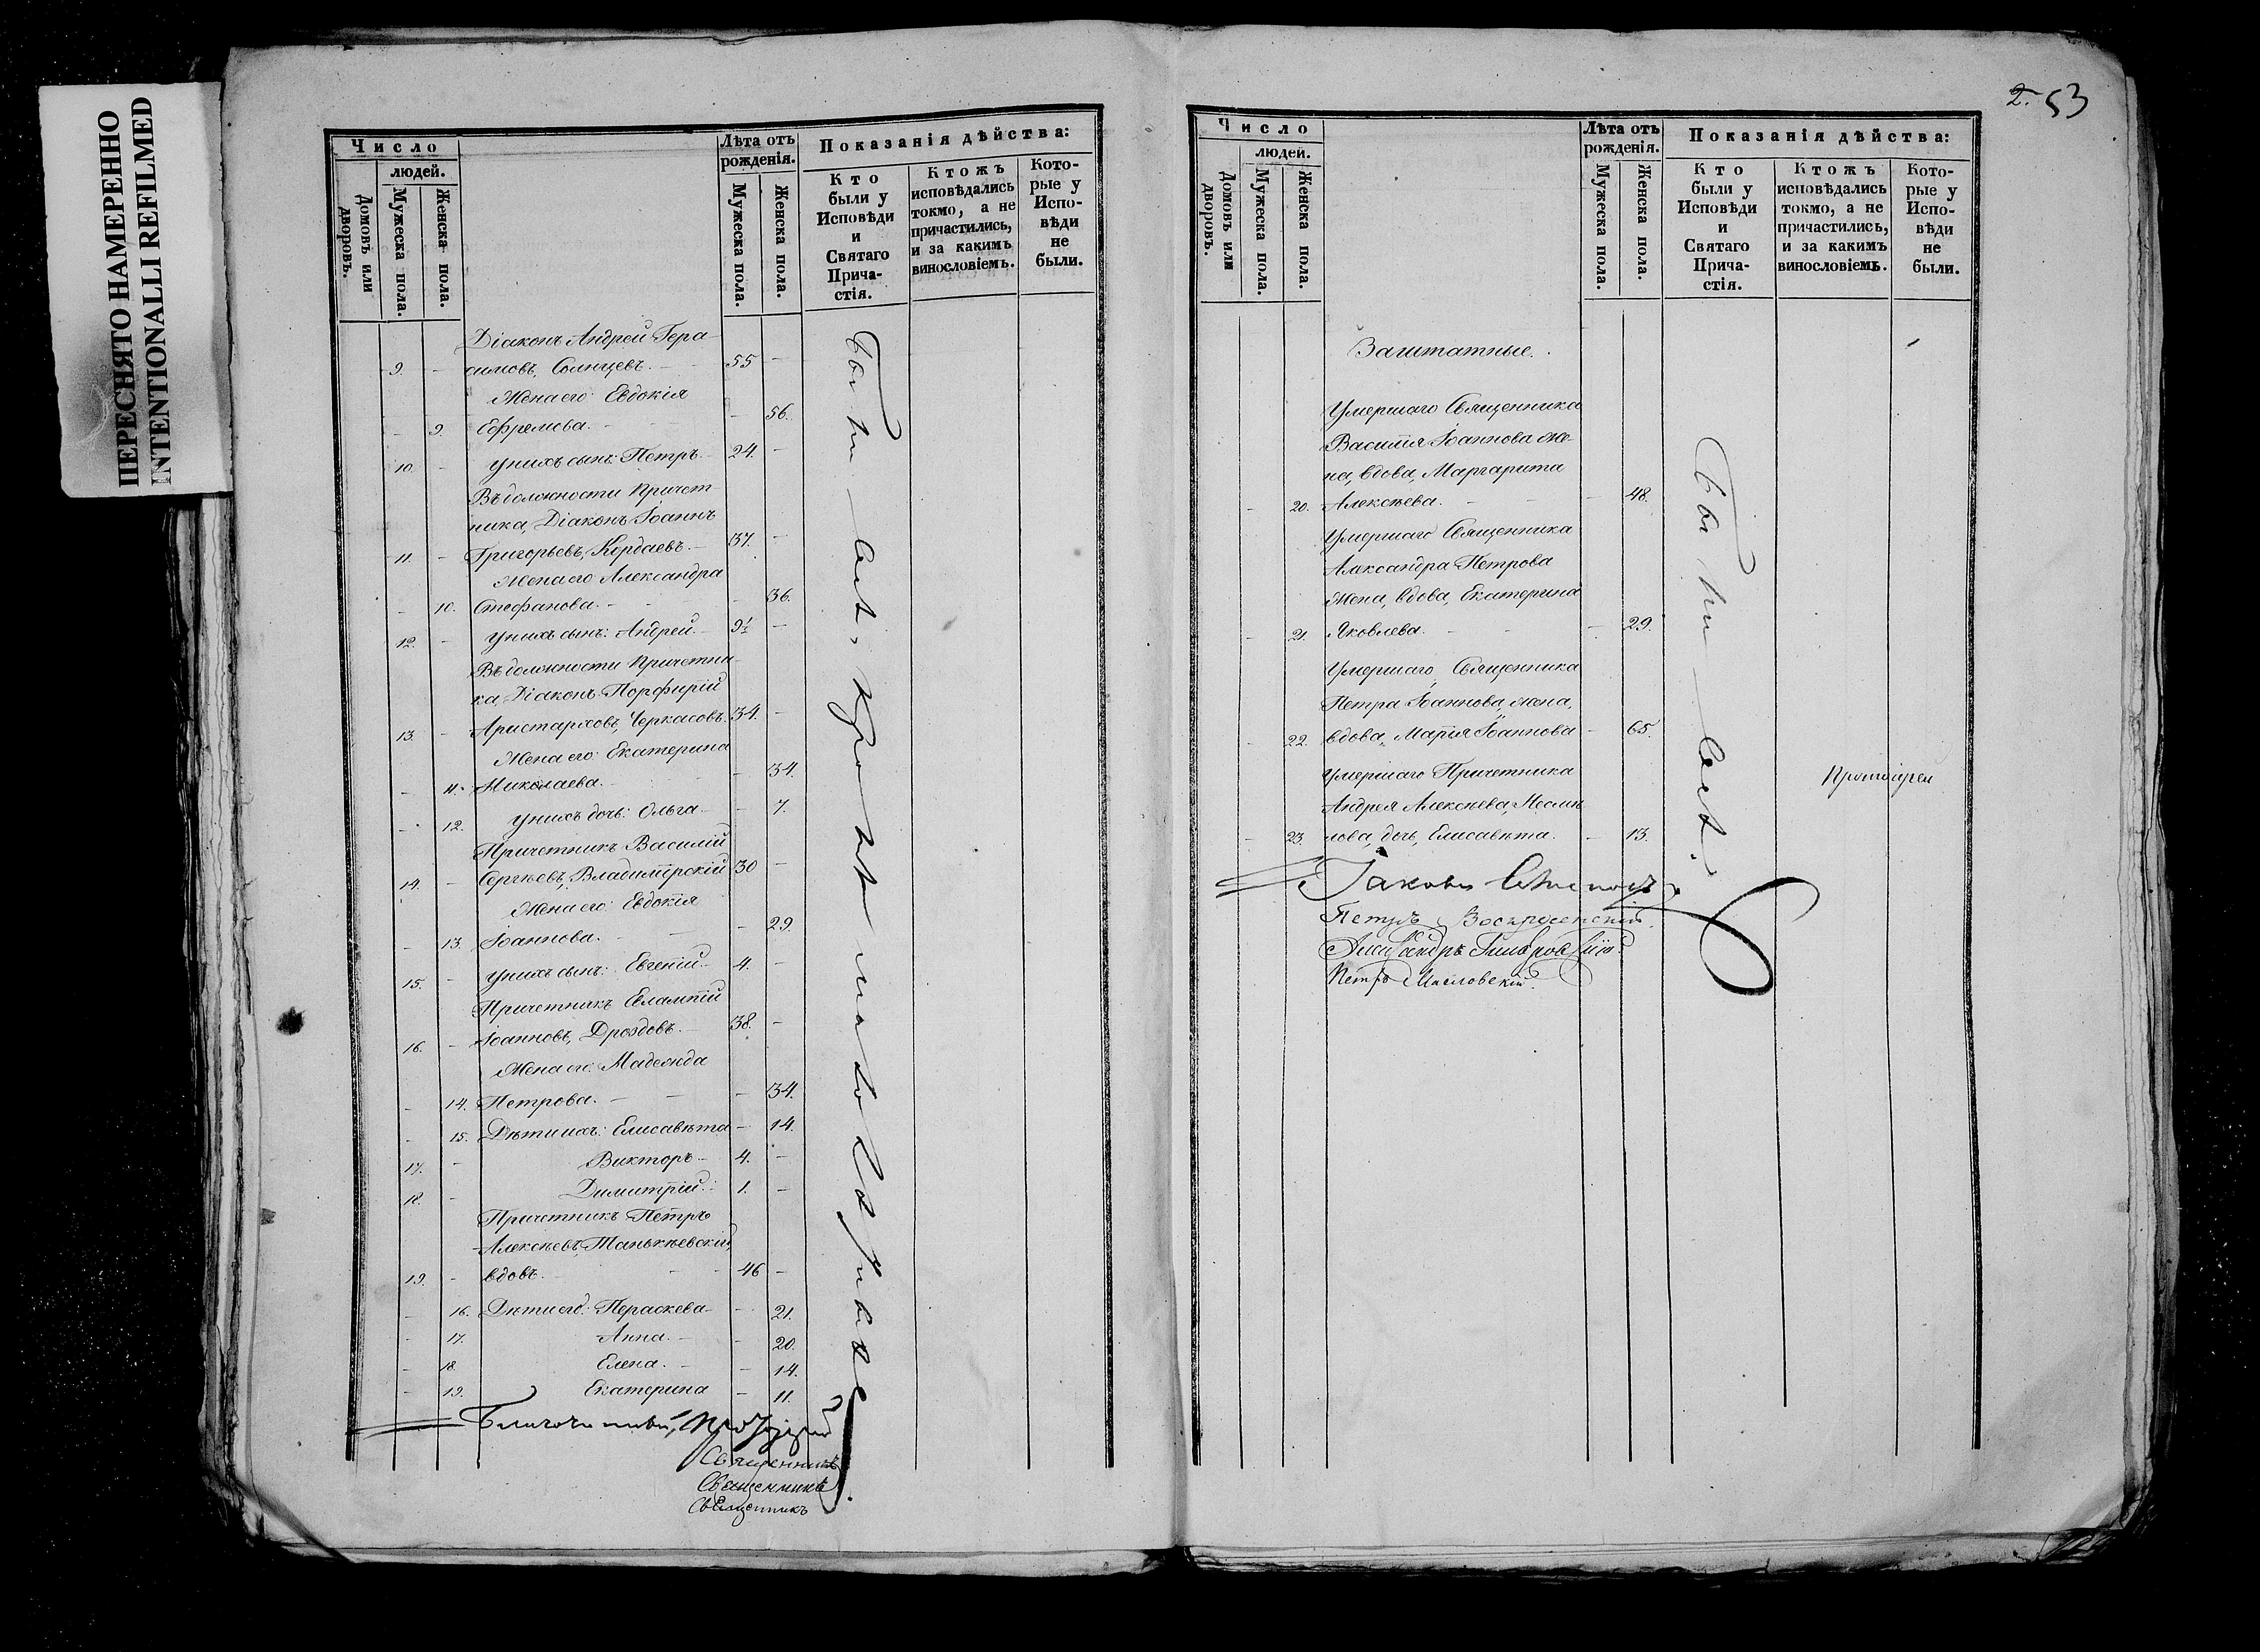 ПЕРЕСНЯТО НАМЕРЕННО
INTENTIONALLI REFILMED
Число
людей.
Домовъ или дворовъ.
Мужеска пола.
Женска пола.
Лѣта отъ рожденія.
Мужеска пола.
Женска пола.
Показанія дѣйства:
Кто были у Исповѣди и Святаго Прича-стія.
Ктожъ исповѣдались токмо, а не причастились, и за какимъ винословіемъ.
Кото-рые у Испо-вѣди не были.
Діаконъ Андрей Гера
9. - симовъ, Солнцевъ. - 55 -
Жена его: Евдокія
- 9. Ефремова. - - 56.
10. - у нихъ сынъ: Петръ. - 24. -
Въ должности причет
ника, Діаконъ Іоаннъ
11. - Григорьевъ, Кордаевъ. - 37. -
Жена его Александра
- 10. Стефанова. - - 36.
12. - у нихъ сынъ: Андрей. - 9½ -
Въ должности причетни
ка, Діаконъ Порфирій
13. - Аристарховъ, Черкасовъ. 34. -
Жена его: Екатерина
- 11. Николаева. - - 34.
- 12. у нихъ дочь: Ольга. - - 7.
Причетникъ Василій
14. - Сергѣевъ, Владимірскій 30 -
Жена его: Евдокія
- 13. Іоаннова. - - 29.
15. - у нихъ сынъ: Евгеній. - 4. -
Причетникъ Евлампій
16. - Іоанновъ, Дроздовъ. - 38. -
Жена его: Надежда
- 14. Петрова. - - 34.
- 15. Дѣти ихъ: Елисавѣта - 14.
17. - Викторъ. - 4. -
18. - Димитрій. 1. -
Причетникъ Петръ
Алексѣевъ,
19. - вдовъ. - - 46 -
- 16. Дѣти его: Параскева - - 21.
- 17. Анна. - - 20.
- 18. Елена. - - 14.
- 19. Екатерина - 11.
Были всѣ, кромѣ
Благочинный, Протоіерей
Священникъ
Священникъ
Священникъ
2. 53
Число
людей.
Домовъ или дворовъ.
Мужеска пола.
Женска пола.
Лѣта отъ рожденія.
Мужеска пола.
Женска пола.
Показанія дѣйства:
Кто были у Исповѣди и Святаго Прича-стія.
Ктожъ исповѣдались токмо, а не причастились, и за какимъ винословіемъ.
Кото-рые у Испо-вѣди не были.
Заштатные.
Умершаго Священника
Василія Іоаннова же-
на, вдова, Маргарита
- 20. Алексѣева. - - 48.
Умершаго Священника
Александра Петрова
Жена, вдова, Екатерина
- 21. Яковлева. - - 29.
Умершаго Священника
Петра Іоаннова, жена,
- 22. вдова, Марія Іоаннова - 65.
Умершаго Причетника
Андрея Алексѣева,
- 23. лова, дочь, Елисавѣта. - 13.
Были всѣ.
Протоіерей
Іаковъ
Петръ Воскресенскій.
Александръ
Петръ Масловскій.